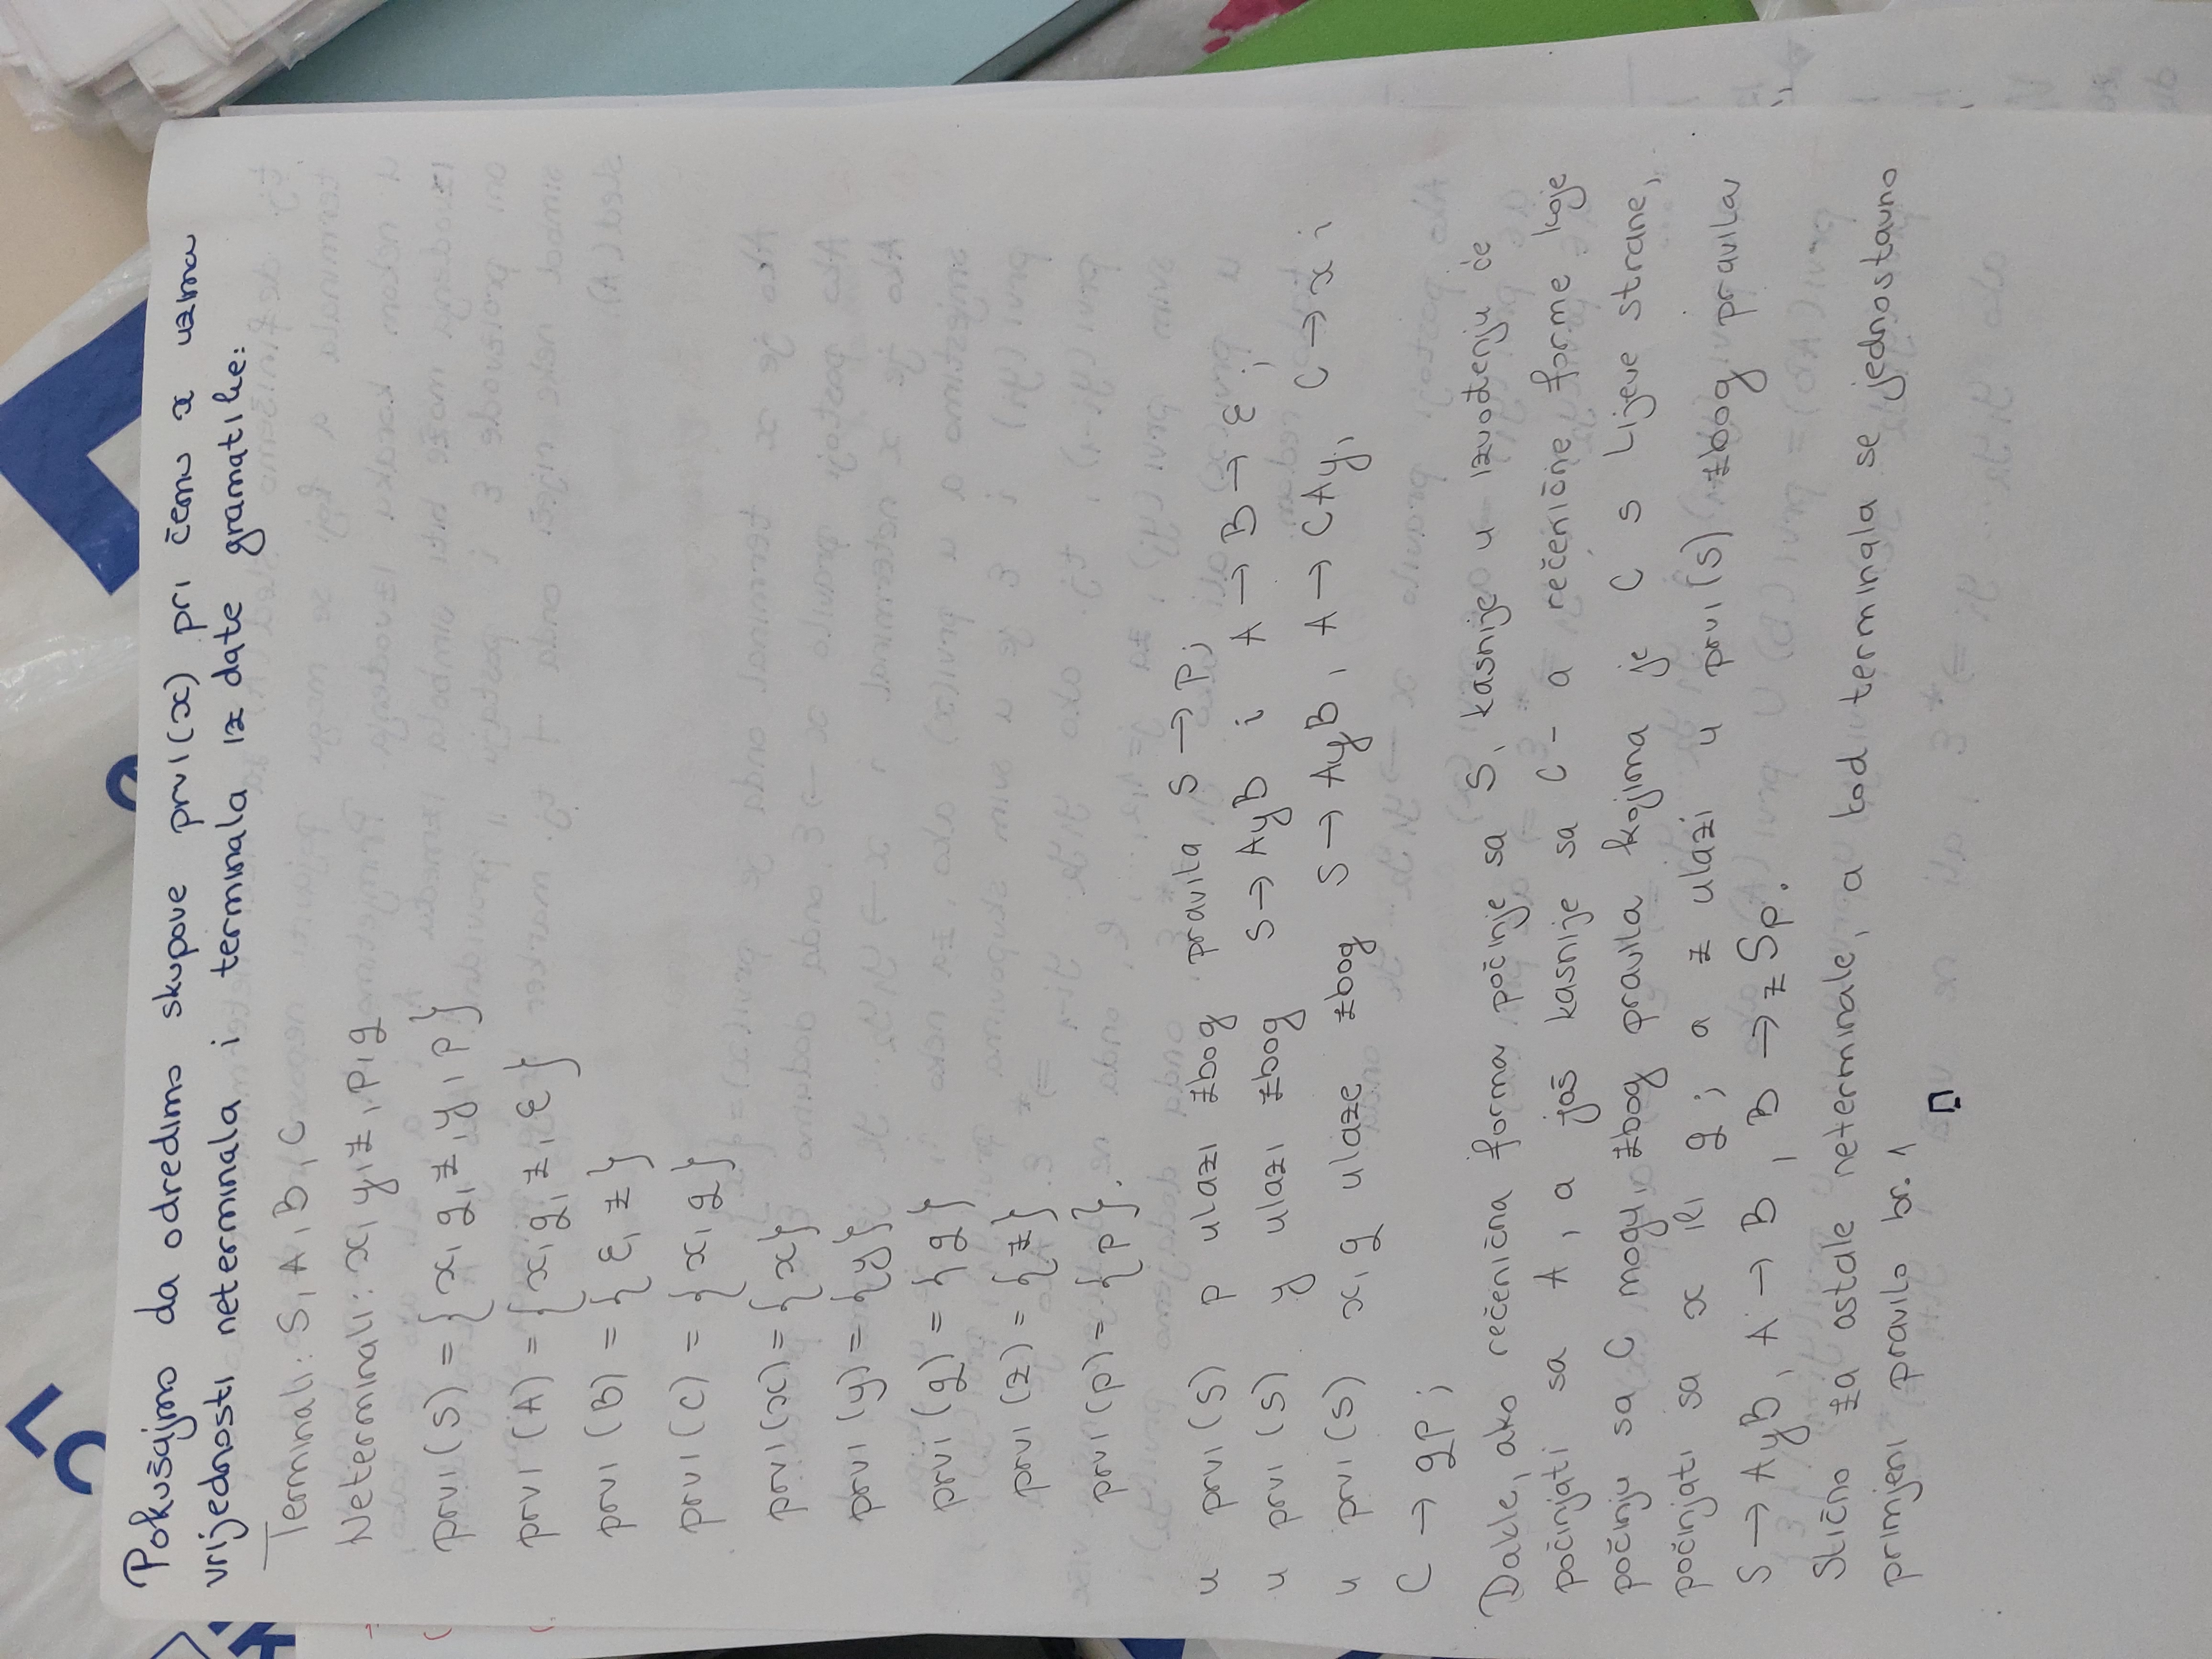 LC
Pokušajmo da odredimo skupove prvi(x) pri čemu x uzima
vrijednosti neterminala i terminala iz date gramatike:
Terminali: S, A, B, C
Neterminali: x, y, z, p, g
prvi(S) = {x, g, z, y, p}
prvi(A) = {x, g, z, ε}
prvi(B) = {ε, z}
prvi(C) = {x, g}
prvi(x) = {x}
prvi(y) = {y}
prvi(g) = {g}
prvi(z) = {z}
prvi(p) = {p}.
u prvi(S) p ulazi zbog pravila S → p;
u prvi(S) y ulazi zbog S → AyB i A → B → ε;
u prvi(S) x, g ulaze zbog S → AyB, A → CAy, C → x i
C → gp;
Dakle, ako rečenična forma počinje sa S, kasnije u izvođenju će
počinjati sa A, a još kasnije sa C - a rečenične forme koje
počinju sa C mogu, zbog pravila kojima je C s lijeve strane,
počinjati sa x ili g; a z ulazi u prvi(S) zbog pravila
S → AyB, A → B, B → zSp.
Slično za ostale neterminale, a kod terminala se jednostavno
primjeni pravilo br. 1